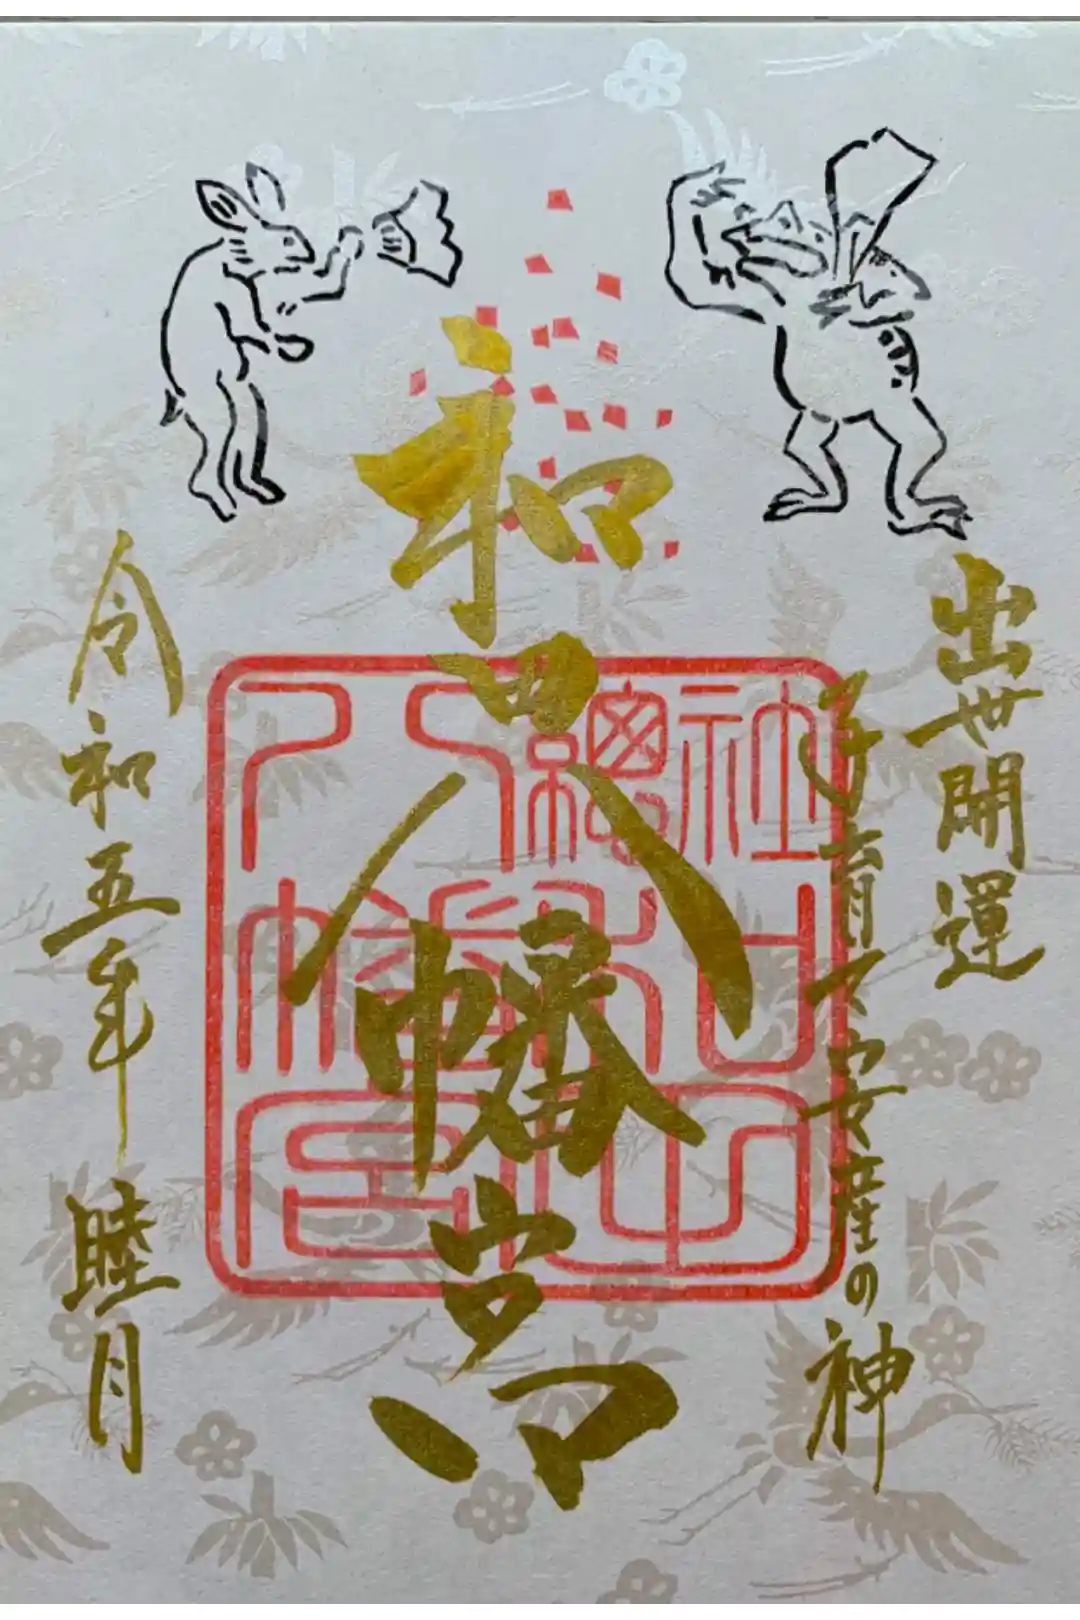 出世開運
子育て安産の神
和田八幡宮
令和五年睦月
八幡宮